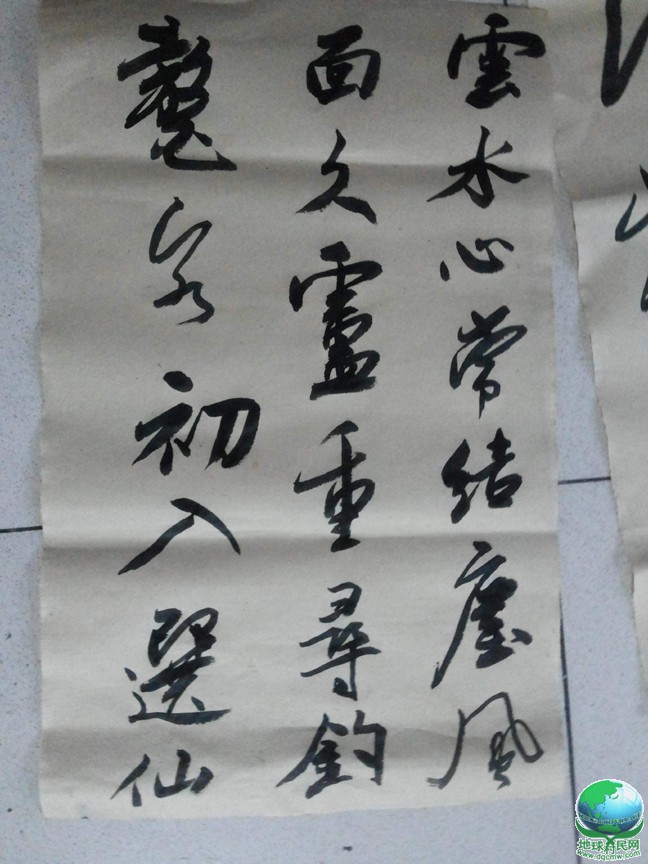 雲水心常結塵風
面久靈重尋釣
鰲客初入選仙
地球村民网
www.dqcmw.com